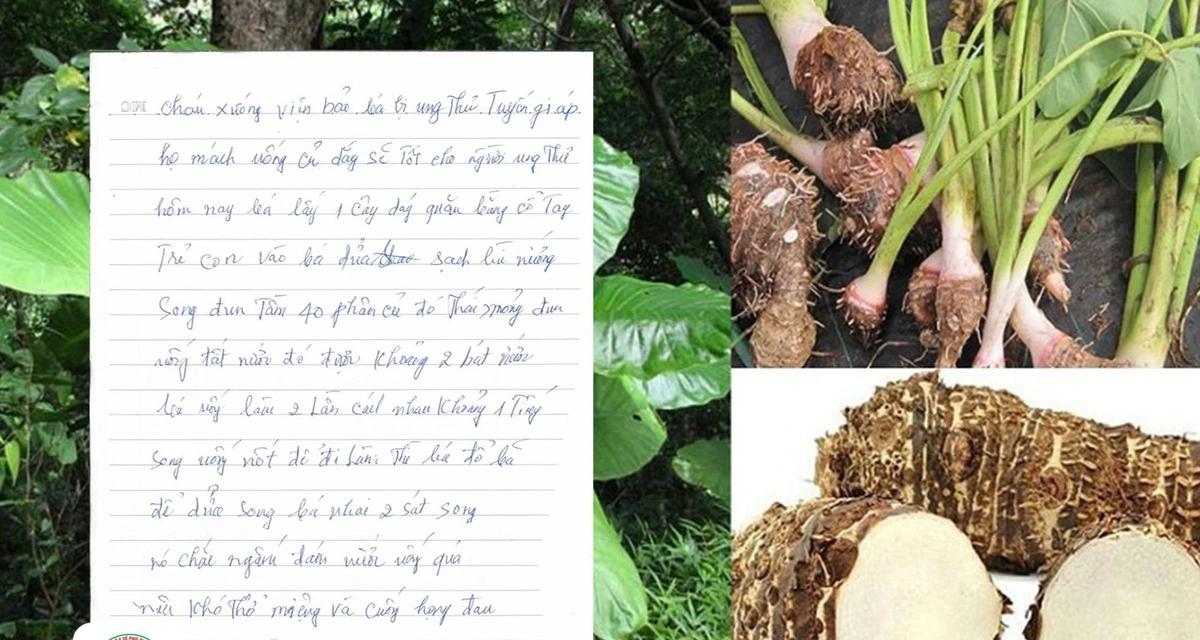 cháu xuống viện bảo bá bị ung thư Tuyến giáp.
họ mách uống củ dáy sẽ Tốt cho người ung thư
hôm nay bá lấy 1 cây dáy quắn bằng cổ Tay
Trẻ con vào bá rửa sạch
song đun Tầm 40 phân củ đó Thái mỏng đun
uống tất nước đó được khoảng 2 bát nước
bá uống làm 2 Lần cách nhau khoảng 1 Tiếng
song uống nốt để đi Làm. Thì bá đổ bã
để song bá nhai 2 sát song
nó chắc ngấm đám nước uống quá
nên khó Thở miệng và cuống họng đau